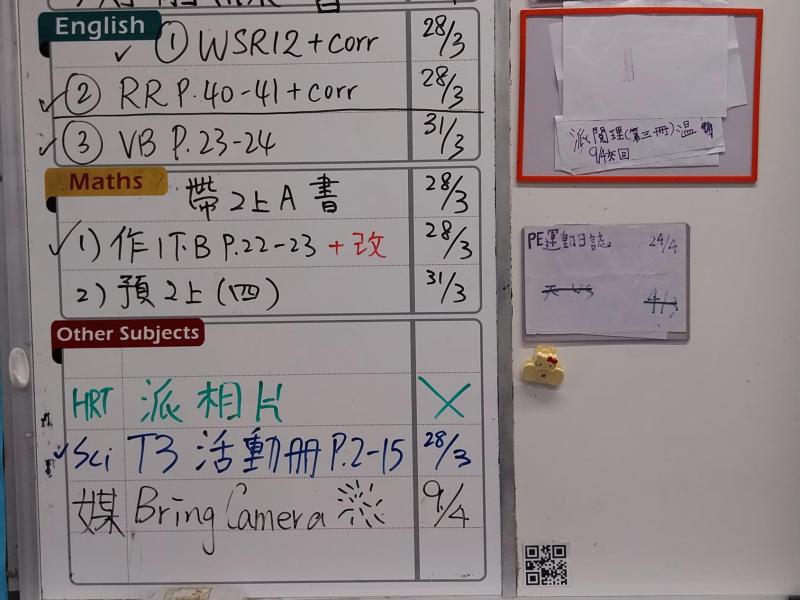 English
✓ ① WSR12 + corr 28/3
✓ ② RR P.40-41 + corr 28/3
✓ ③ VB P.23-24 31/3
Maths
帶2上A書 28/3
✓ 1) 作IT.B P.22-23 + 改 28/3
2) 預2上(四) 31/3
Other Subjects
HRT 派相片 X
✓ Sci T3 活動冊 P.2-15 28/3
媒 Bring Camera 9/4
派閱理(第三冊)溫
9/4交回
PE運動日誌 24/4